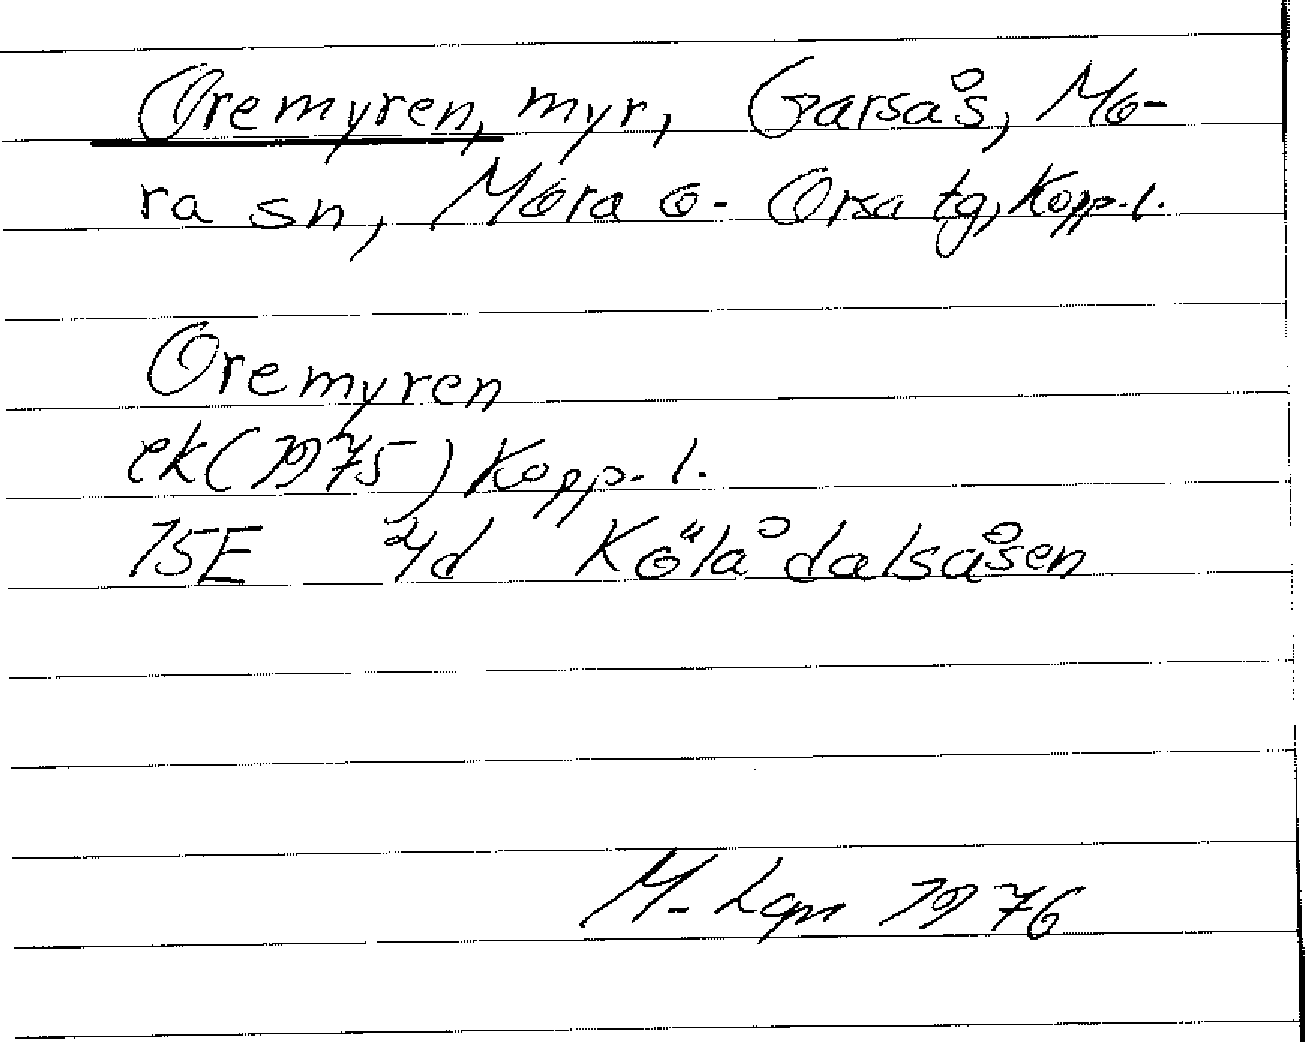 Oremyren, myr, Garsås, Mo-
ra sn, Mora o. Orsa tg, Kopp. l.
Oremyren
ek (1975) Kopp. l.
15E 4d Kölådalsåsen
M. 1976